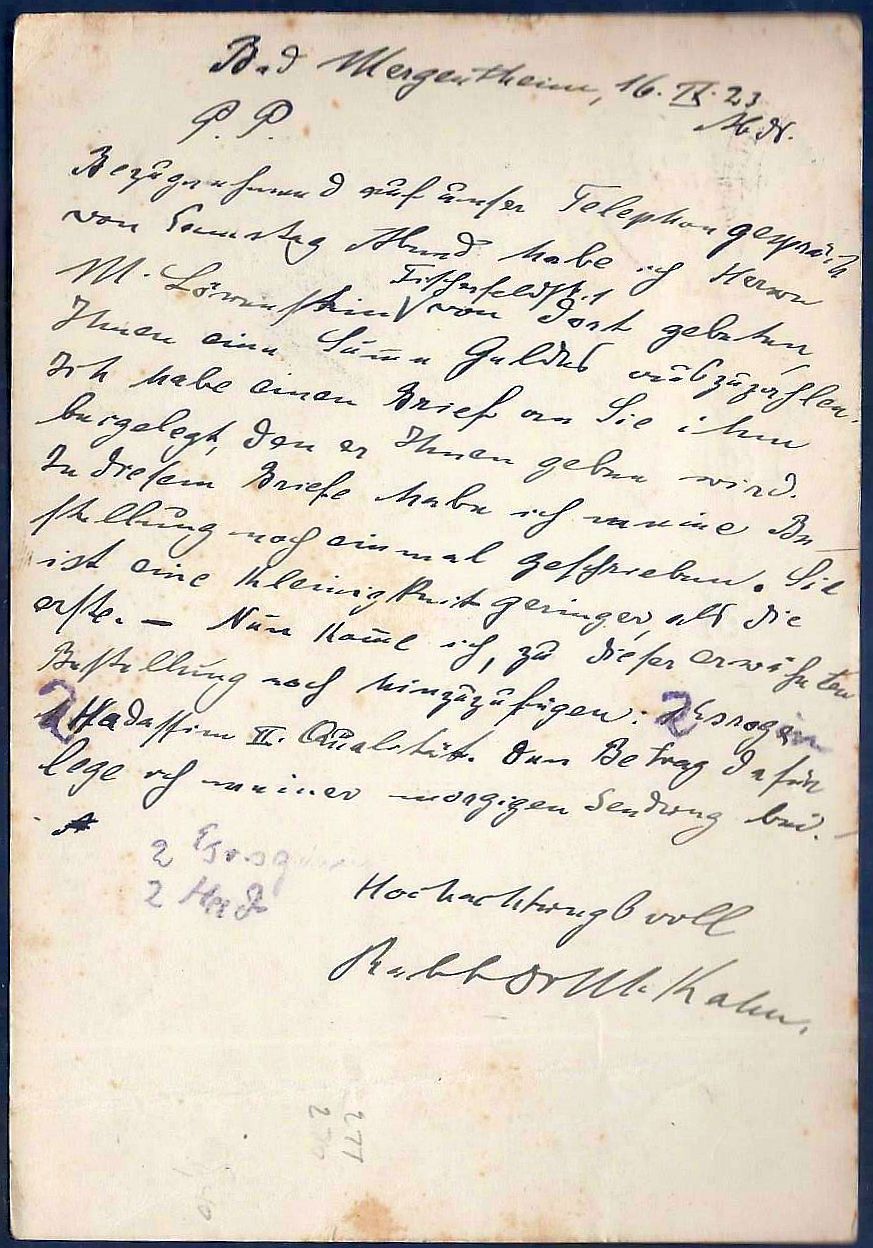 Bad Mergentheim, 16. IX. 23
P. P.
Bezugnehmend auf unser Telephongespräch
von Samstag Abend habe ich Herrn
Fischerfeldstr. 1
M. Löwenstein von dort gebeten,
Ihnen eine Summe Geldes auszuzahlen.
Ich habe einen Brief an Sie ihm
beigelegt, den er Ihnen geben wird.
In diesem Briefe habe ich meine Be-
stellung noch einmal geschrieben. Sie
ist eine Kleinigkeit geringer, als die
erste. — Nun komme ich, zu dieser erwähnten
Bestellung noch hinzuzufügen: 2 Esrogim
2 Hadassim II. Qualität. Den Betrag dafür
lege ich meiner morgigen Sendung bei.
2 Esrog
2 Had
Hochachtungsvoll
Rabb Dr M. Kahn.